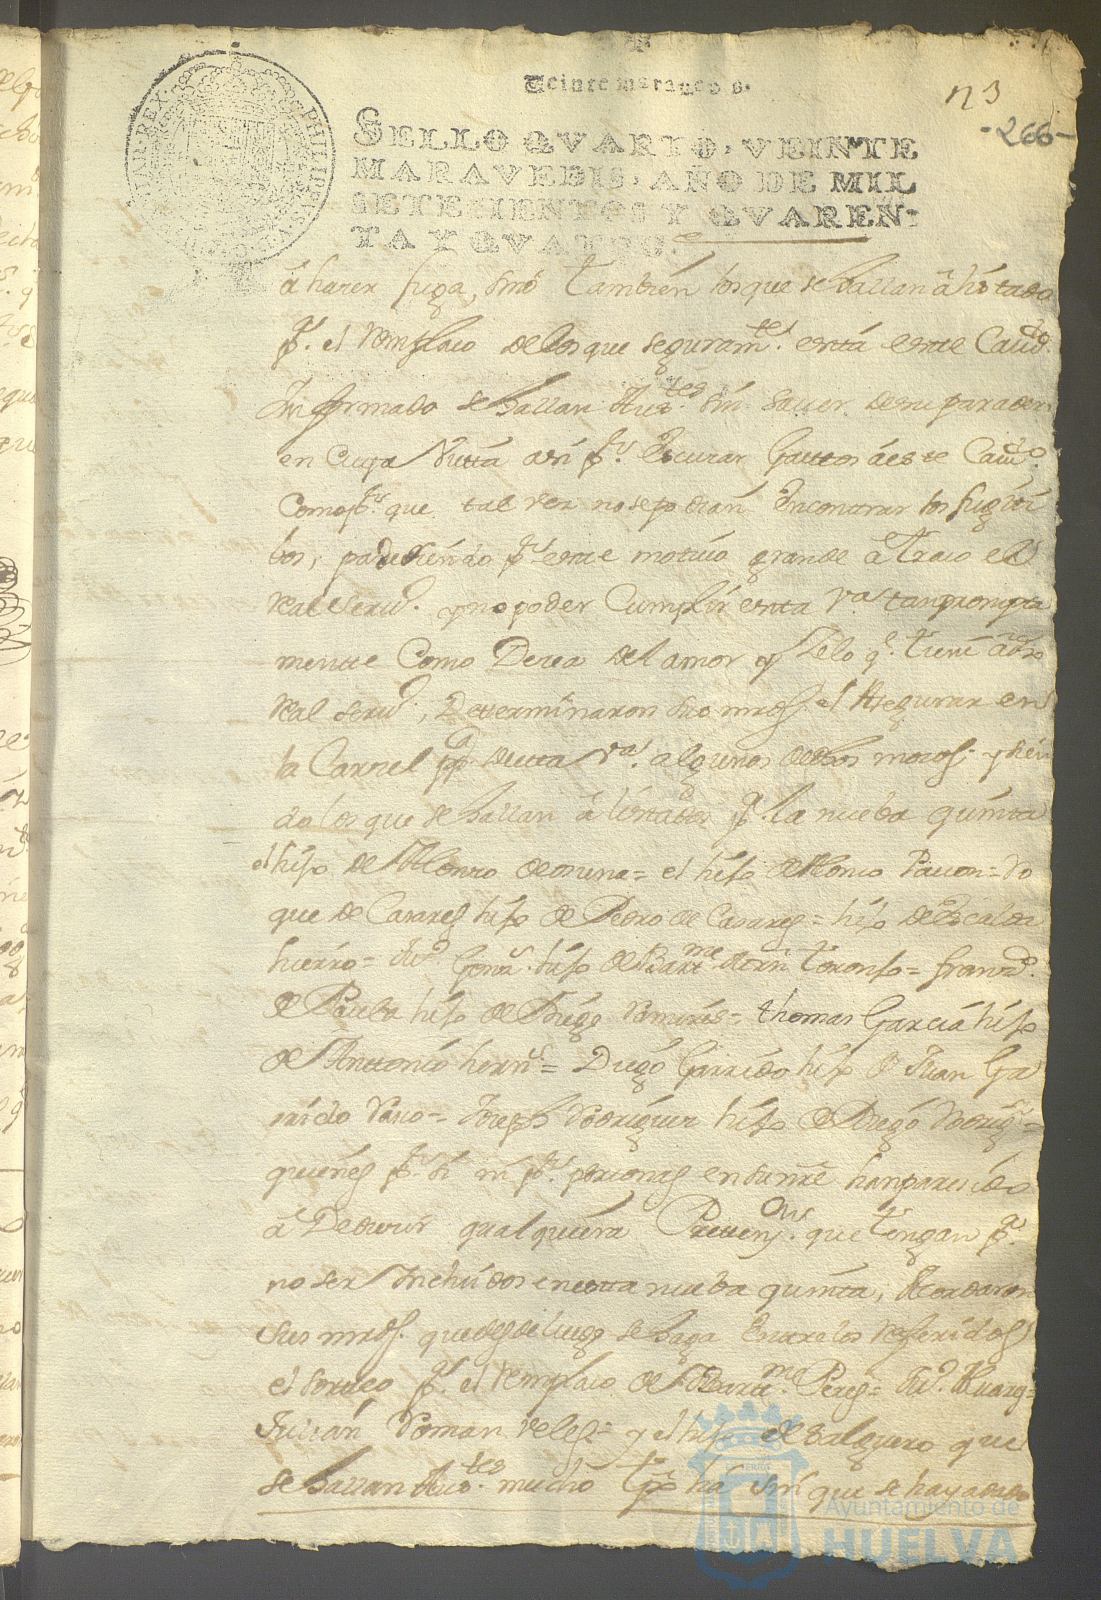 Veinte maravedis.
SELLO QVARTO, VEINTE
MARAVEDIS, AÑO DE MIL
SETECIENTOS Y QVAREN-
TA Y QVATRO.
PHILIPPVS V
HISPANIAR. REX
113
-266-
â hazer fuga, sino tambien los que se hallan âlistado
pa. el remplazo de los que seguramte. está este Cavdo.
Informado se hallan Austes. sin saver de su paradero
en cuya vistta asi pr. Escusar Gasttos â este Cavdo.
como pr. que tal vez no se podrán Encontrar los fugiti
bos, padesiendo pr. este motivo grande âtraso el
Real Servo. y no poder Cumplir esta va. tan prompta
mentte Como Desea del amor y Zelo qe. tiene â dho
Real servo., Determinaron sus mrds. el Asegurar en
la Carzel ppca. de esta va. algunos de dhos mozos y sien
do los que se hallan â listados pa. la nueba quinta
el hijo de Alonso de osuna = el hijo de Alonso Pavon = Ro
que de Casares hijo de Pedro de Casares = hijo de
hierro = Juo. Gonz. hijo de Barme. Toronjo = Franco.
de Paula hijo de Diego Ramires = thomas Garcia hijo
de Anttonio hernz. = Diego Garrido hijo de Juan Ga
rrido = Joseph Rodriguez hijo de Diego Rodrigz. =
quienes pr. si ni pr. personas en su nre han paresido
â Deduzir qualquiera que tengan pa.
no ser Incluidos en esta nueba quinta, Acordaron
sus mrds. que desde luego se haga Entre los referidos
el sorteo pa. el remplazo de Barme. Peres = Juo. Suarez =
Julian Roman Veles = y el hijo de Salguero que
se hallan Austes. mucho tpo. ha sin que se haya dado
Ayuntamiento de
HUELVA